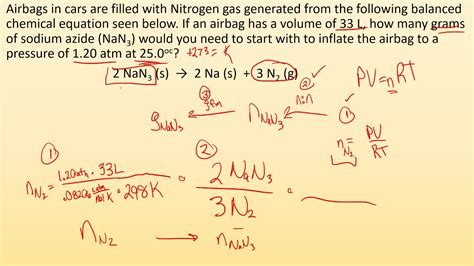 Airbags in cars are filled with Nitrogen gas generated from the following balanced
chemical equation seen below. If an airbag has a volume of 33 L, how many grams
of sodium azide (NaN₃) would you need to start with to inflate the airbag to a
pressure of 1.20 atm at 25.0°ᶜ? +273 = K
2 NaN₃ (s) → 2 Na (s) + 3 N₂ (g)
PV=nRT
③ gfm ② n:n ①
g NaN₃ ← n NaN₃ ← n N₂ = PV/RT
① ②
n N₂ = 1.20atm · 33L / .08206 L·atm/mol·K · 298K · 2 NaN₃ / 3 N₂ ·
n N₂ → n NaN₃